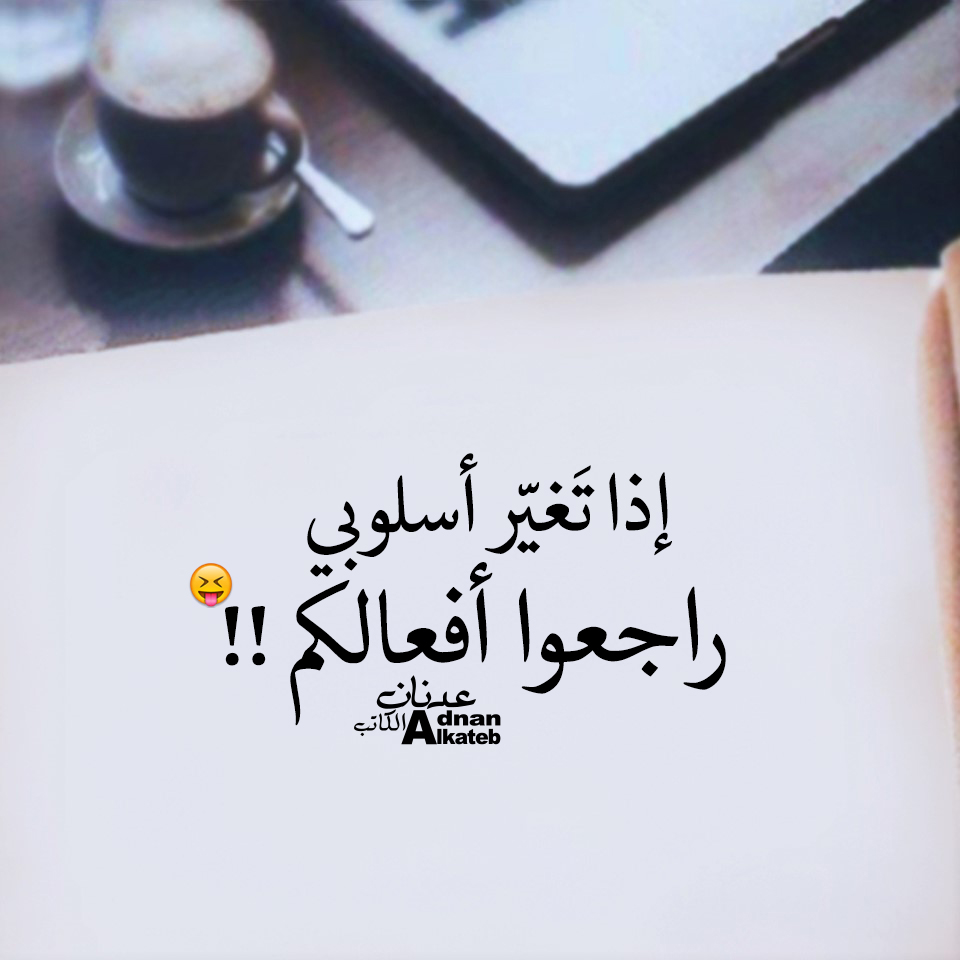 إذا تَغيّر أسلوبي
راجعوا أفعالكم !! 😝
عدنان
الكاتب
Adnan
Alkateb